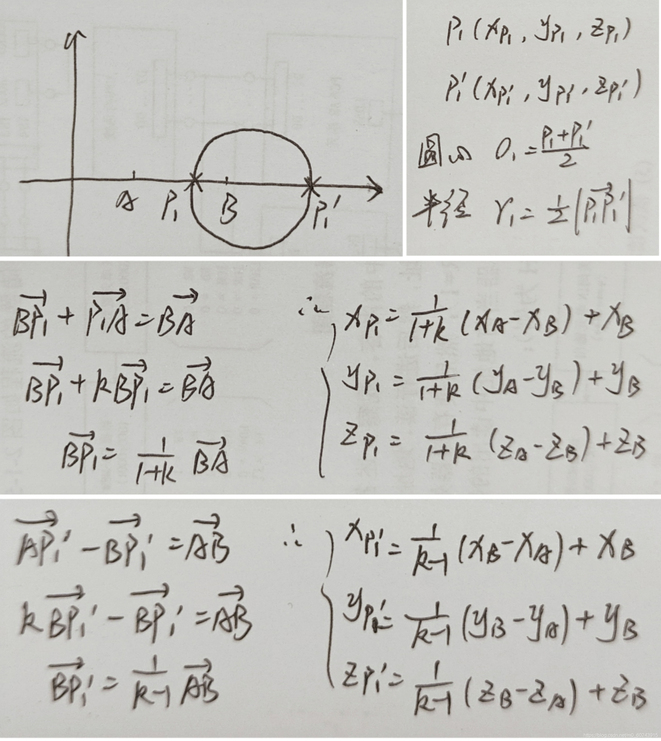 y
A P₁ B P₁'
P₁(x_P₁, y_P₁, z_P₁)
P₁'(x_P₁', y_P₁', z_P₁')
圆心 O₁ = (P₁+P₁')/2
半径 r₁ = ½|P₁P₁'→|
BP₁→ + P₁A→ = BA→
BP₁→ + kBP₁→ = BA→
BP₁→ = 1/(1+k) BA→
∴ { x_P₁ = 1/(1+k) (x_A - x_B) + x_B
y_P₁ = 1/(1+k) (y_A - y_B) + y_B
z_P₁ = 1/(1+k) (z_A - z_B) + z_B
AP₁'→ - BP₁'→ = AB→
kBP₁'→ - BP₁'→ = AB→
BP₁'→ = 1/(k-1) AB→
∴ { x_P₁' = 1/(k-1) (x_B - x_A) + x_B
y_P₁' = 1/(k-1) (y_B - y_A) + y_B
z_P₁' = 1/(k-1) (z_B - z_A) + z_B